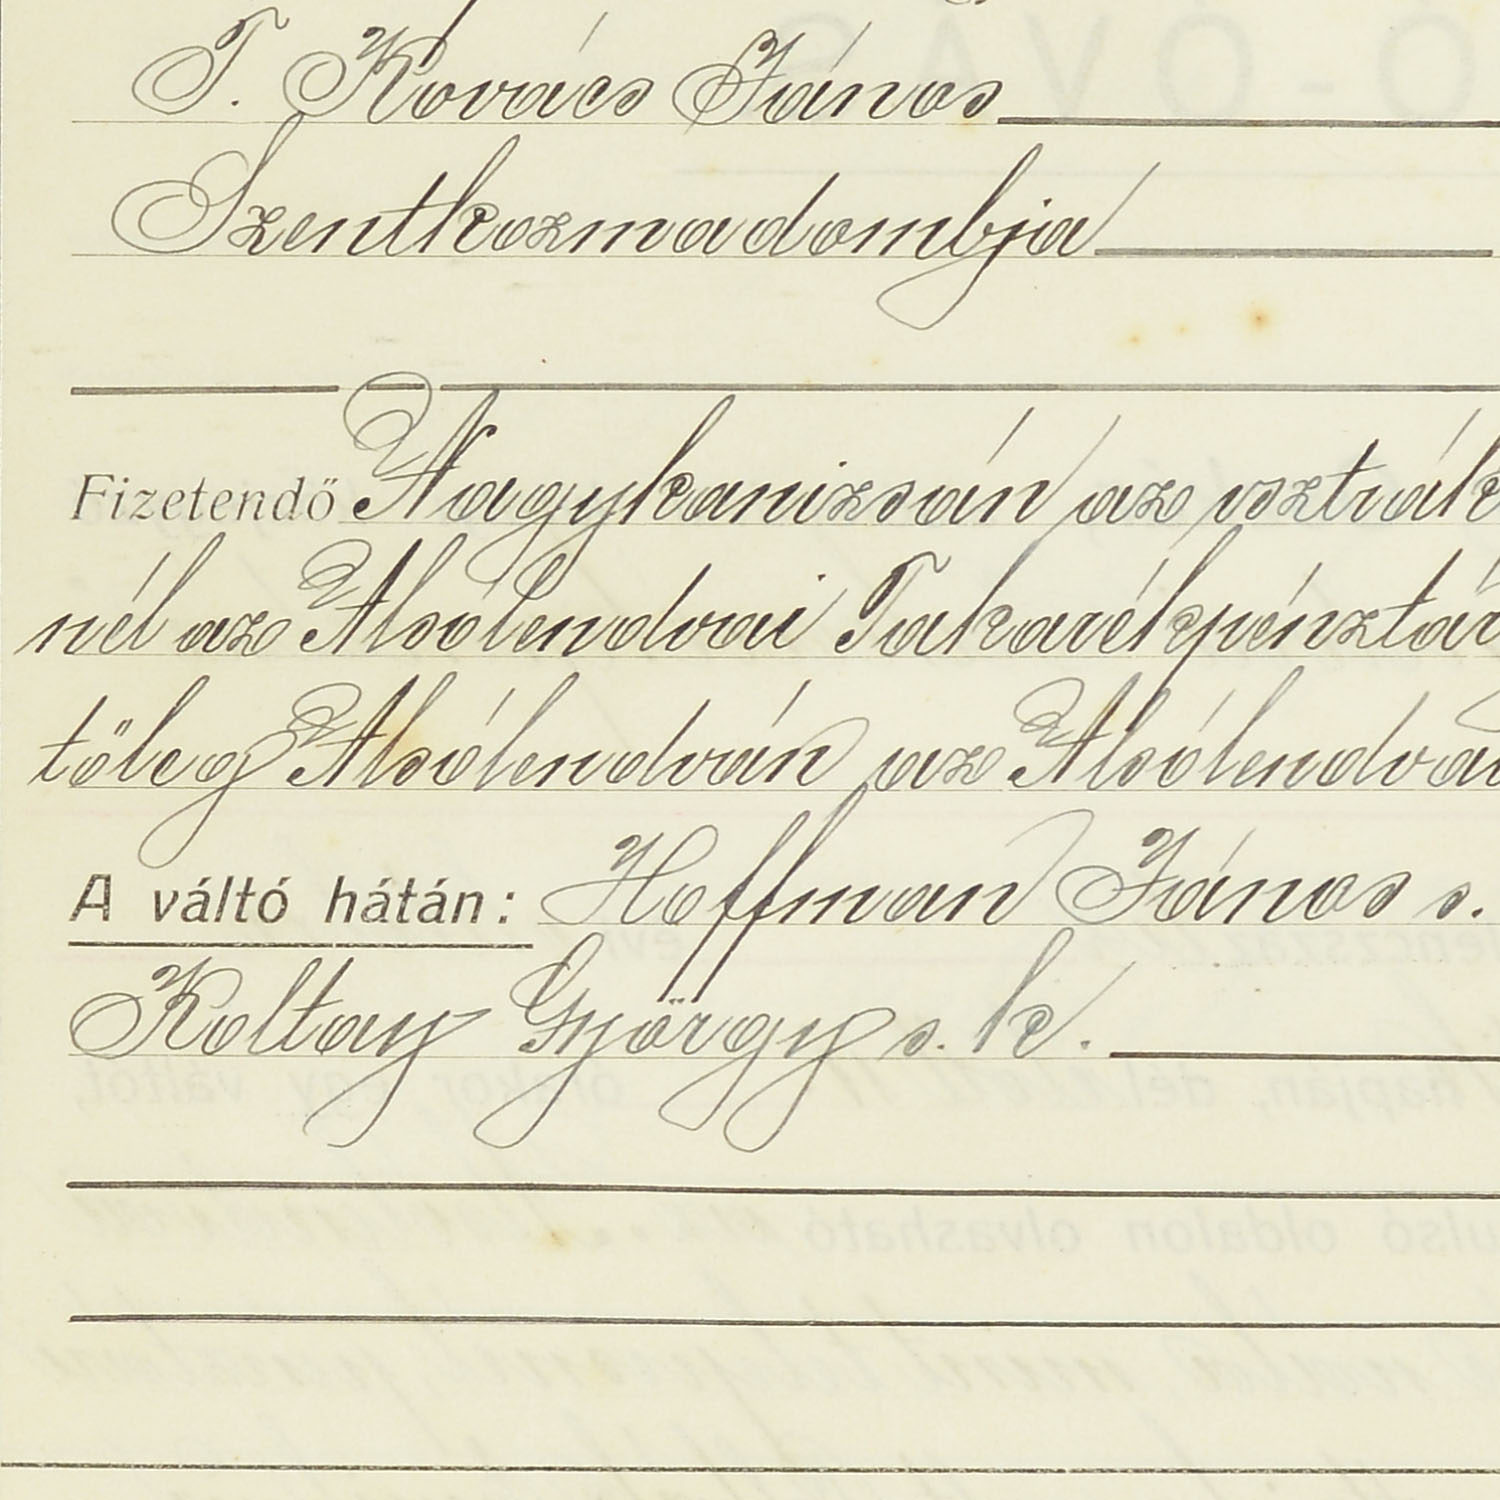 T. Kovács János
Szentkozmadombja
Fizetendő Nagykanizsán az osztrák
nél az Alsólendvai Takarékpénztár
tőleg Alsólendván az Alsólendvai
A váltó hátán: Hoffman János s.
Koltay György s. k.